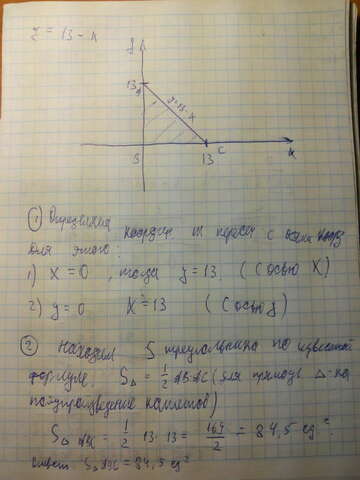 y = 13 - x
y
13 A
y=13-x
B
13 C
x
① Определим коорд. т. пересеч с осями коорд
Для этого:
1) X = 0 , тогда y = 13 (с осью X)
2) y = 0 X = 13 (с осью y)
② Находим S треугольника по известной
формуле. S△ = 1/2 AB·BC (для прямоуг. △-ка
полупроизведение катетов)
S△ABC = 1/2 · 13 · 13 = 169/2 = 84,5 ед²
Ответ: S△ABC = 84,5 ед²